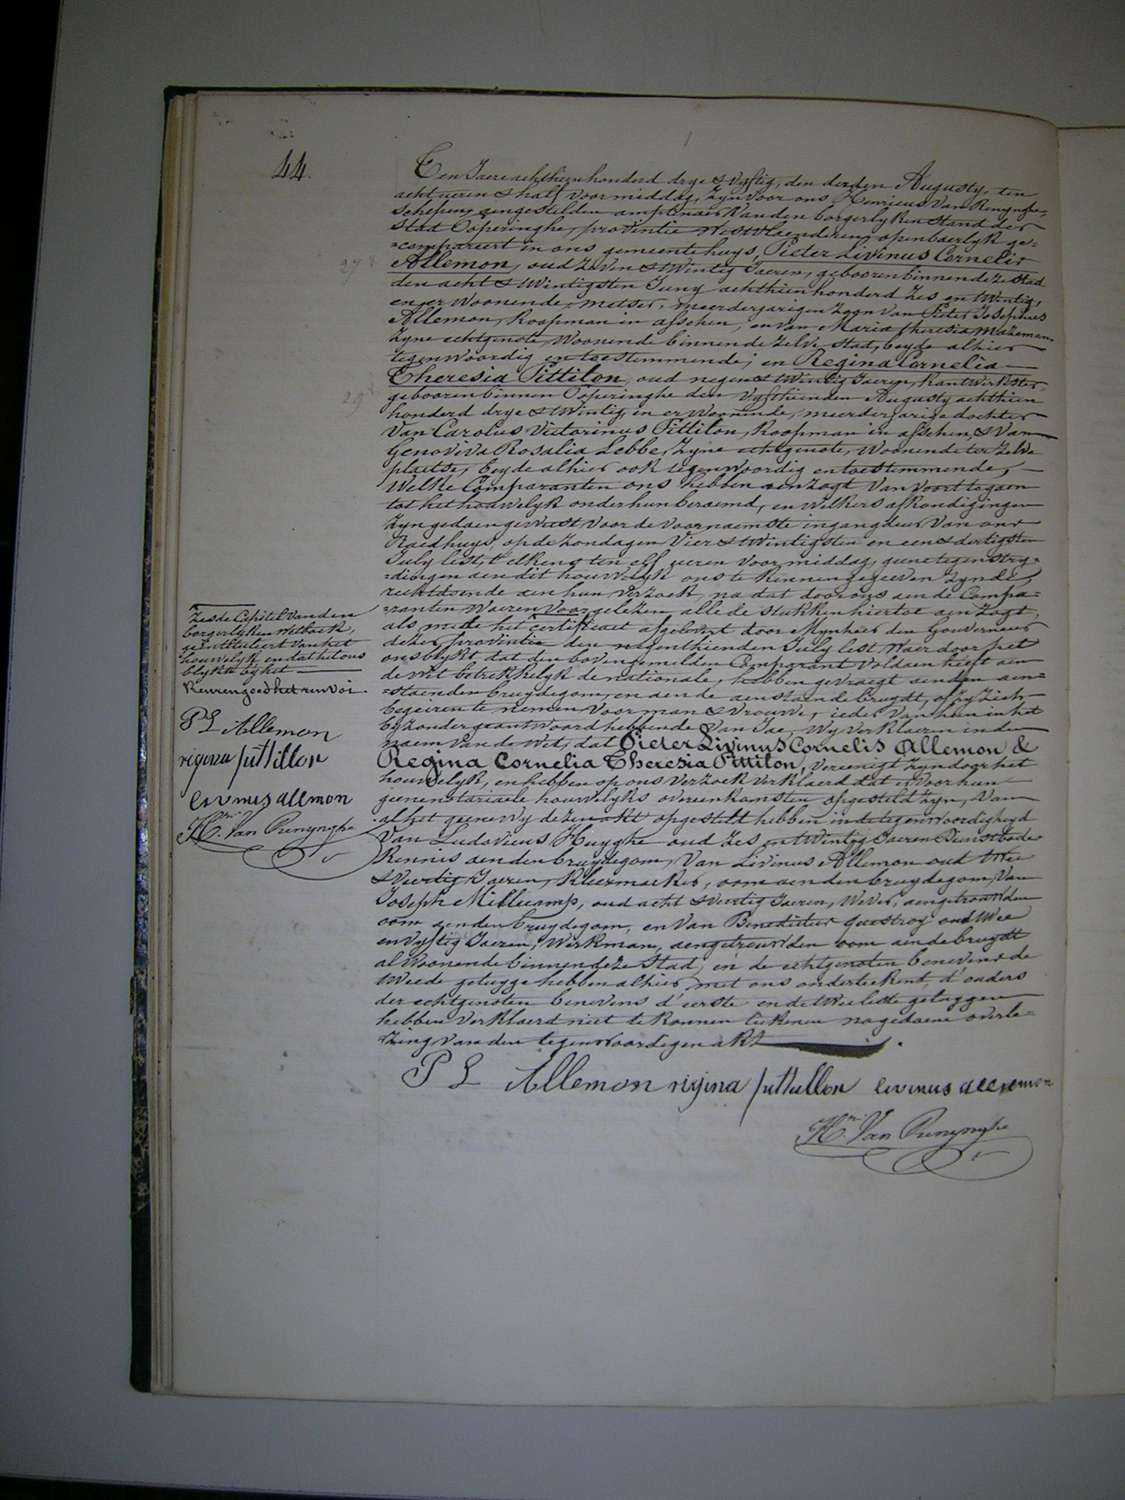 44.
Een Jaere achthienhonderd drye & vyftig, den derden Augusty, ten
acht ueren & half voormiddag, zyn voor ons Henricus Van Renynghe,
Schepen aengestelden amptenaer van den borgerlyken stand der
stad Poperinghe, provintie Westvlaenderen, openbaerlyk ge=
=compareert in ons gemeentehuys, Pieter Livinus Cornelis
27 Allemon, oud zeven & twintig Jaeren, gebooren binnen deze stad
den acht & twintigsten Juny achthien honderd zes en twintig,
en er woonende, metser, meerderjarigen zoon van Pieter Josephus
Allemon, koopman in asschen, en van Maria Theresia Mazeman
zyne echtgenote, woonende binnen de zelve stad, beyde alhier
tegenwoordig en toestemmende; en Regina Cornelia
Theresia Pittilon, oud negen & twintig Jaeren, kantwerkster
29 gebooren binnen Poperinghe den vyfthienden Augusty achthien
honderd drye & twintig, en er woonende, meerderjarige dochter
van Carolus Victorinus Pittilon, koopman in asschen, & van
Genoviva Rosalia Lebbe, zyne echtgenote, woonende ter zelve
plaetse, beyde alhier ook tegenwoordig en toestemmende,
Welke Comparanten ons hebben aenzogt van voort te gaen
tot het houwelyk onder hun beraemd, en welkers afkondigingen
zyn gedaen geweest voor de voornaemste ingangdeur van ons
Raedhuys, op de zondagen vier & twintigsten en een & dertigsten
July lest, telkens ten elf ueren voormiddag, geene tegenstry=
=dingen aen dit houwelyk ons te kennen gegeven zynde,
rechtdoende aen hun verzoek, na dat door ons aen de Compa=
=ranten waeren voorgelezen alle de stukken hiertoe aenzogt,
als mede het certificaet afgelevert door Mynheer den Gouverneur
dezer provintie den negenthienden July lest, waer door het
ons blykt dat den bovengemelden Comparant voldaen heeft aen
de wet betrekkelyk de nationale, hebben gevraegt aen den aen=
=staenden bruydegom, en aen de aenstaende bruydt, of zy zich
begeiren te nemen voor man & vrouwe, ieder van hun in het
byzonder geantwoord hebbende van Jae, Wy verklaeren in den
naem van de Wet, dat Pieter Livinus Cornelis Allemon &
Regina Cornelia Theresia Pittilon, vereenigt zyn door het
houwelyk, en hebben op ons verzoek verklaerd dat er voor hun
geene notariaele houwelyks overeenkomsten opgesteld zyn, van
al het geene wy dezen akt opgesteld hebben in de tegenwoordigheyd
van Ludovicus Huyghe oud zes en twintig Jaeren Dienstbode
Kennis aen den bruydegom, van Livinus Allemon oud twee
& veertig Jaeren, kleermaeker, oom aen den bruydegom, van
Joseph Millecamp, oud acht & veertig Jaeren, Wever, aengetrouwden
oom aen den bruydegom, en van Benedictus Questroy oud twee
en vyftig Jaeren, Werkman, aengetrouwden oom aen de bruydt
al woonende binnen deze stad, en de echtgenoten benevens de
tweede getuyge hebben alhier met ons onderteekent, d'ouders
der echtgenoten benevens d'eerste en de twee leste getuygen
hebben verklaerd niet te konnen teekenen na gedaene overle=
=zing van den tegenwoordigen akt.
P L Allemon regina puttillon livinus allemon
Hri Van Renynghe
zesde Capittel van den
borgerlyken wetboek
geintituleert van het
houwelyk en dat het ons
blykt by het
Keuren goed het renvoi
P L Allemon
regina puttillon
livinus allemon
Hri Van Renynghe